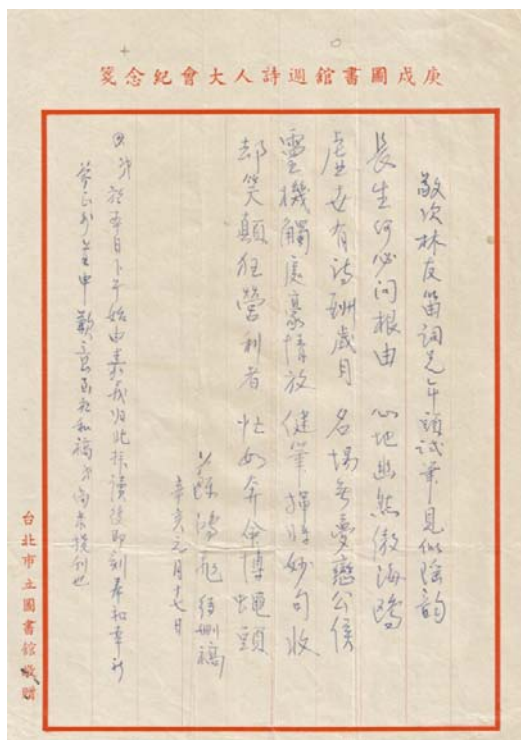 庚戌圖書館週詩人大會紀念箋
敬次林友笛詞兄年頭試筆見似韵
長生何必问根由 心地幽然傲海鷗
處世有詩酬歲月 名場無夢戀公侯
靈機觸處豪情放 健筆揮時妙句收
却笑顛狂營利者 忙如奔命博蠅頭
鴻飛待刪稿
辛亥元月十七日
弟於本日下午始由嘉義歸北拜讀後即刻奉和幸祈
並申歉意和稿尚未
台北市立圖書館敬贈